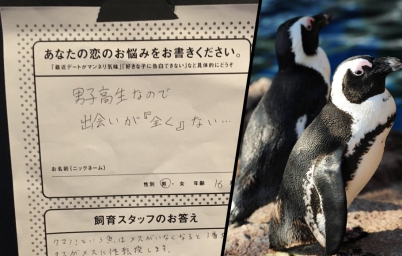 あなたの恋のお悩みをお書きください。
「最近デートがマンネリ気味」「好きな子に告白できない」など具体的にどうぞ
男子高生なので
出会いが『全く』ない…
お名前(ニックネーム)
性別 男・女 年齢 16
飼育スタッフのお答え
クマノミという魚はメスがいなくなると1番
オスがメスに性転換します。